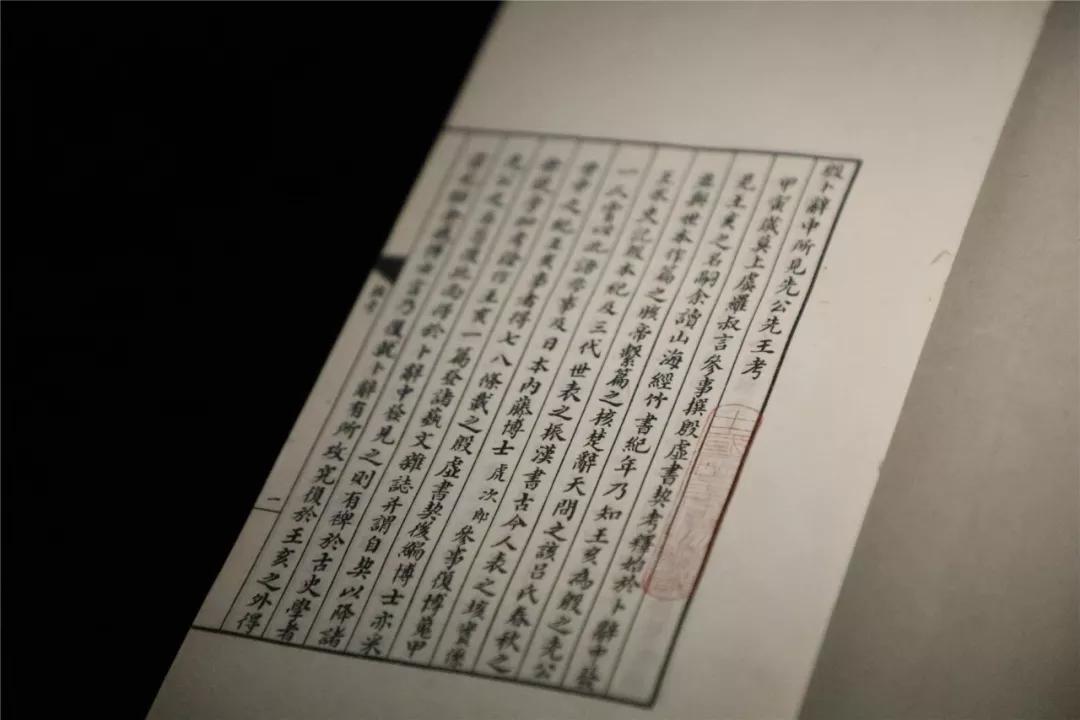 殷卜辭中所見先公先王考
甲寅歲莫上虞羅叔言參事撰殷虛書契考釋始於卜辭中發
見王亥之名嗣余讀山海經竹書紀年乃知王亥為殷之先公
並與世本作篇之胲帝繫篇之核楚辭天問之該呂氏春秋之
王氷史記殷本紀及三代世表之振漢書古今人表之垓實係
一人嘗以此語參事及日本內藤博士虎次郎參事復博蒐甲
骨中之紀王亥事者得七八條載之殷虛書契後編博士亦采
余說旁加考證作王亥一篇發諸藝文雜誌并謂自契以降諸
先公之名苟後此尚得於卜辭中發見之則有裨於古史學者
當尤鉅余感博士言乃復就卜辭有所攷究復於王亥之外得
一